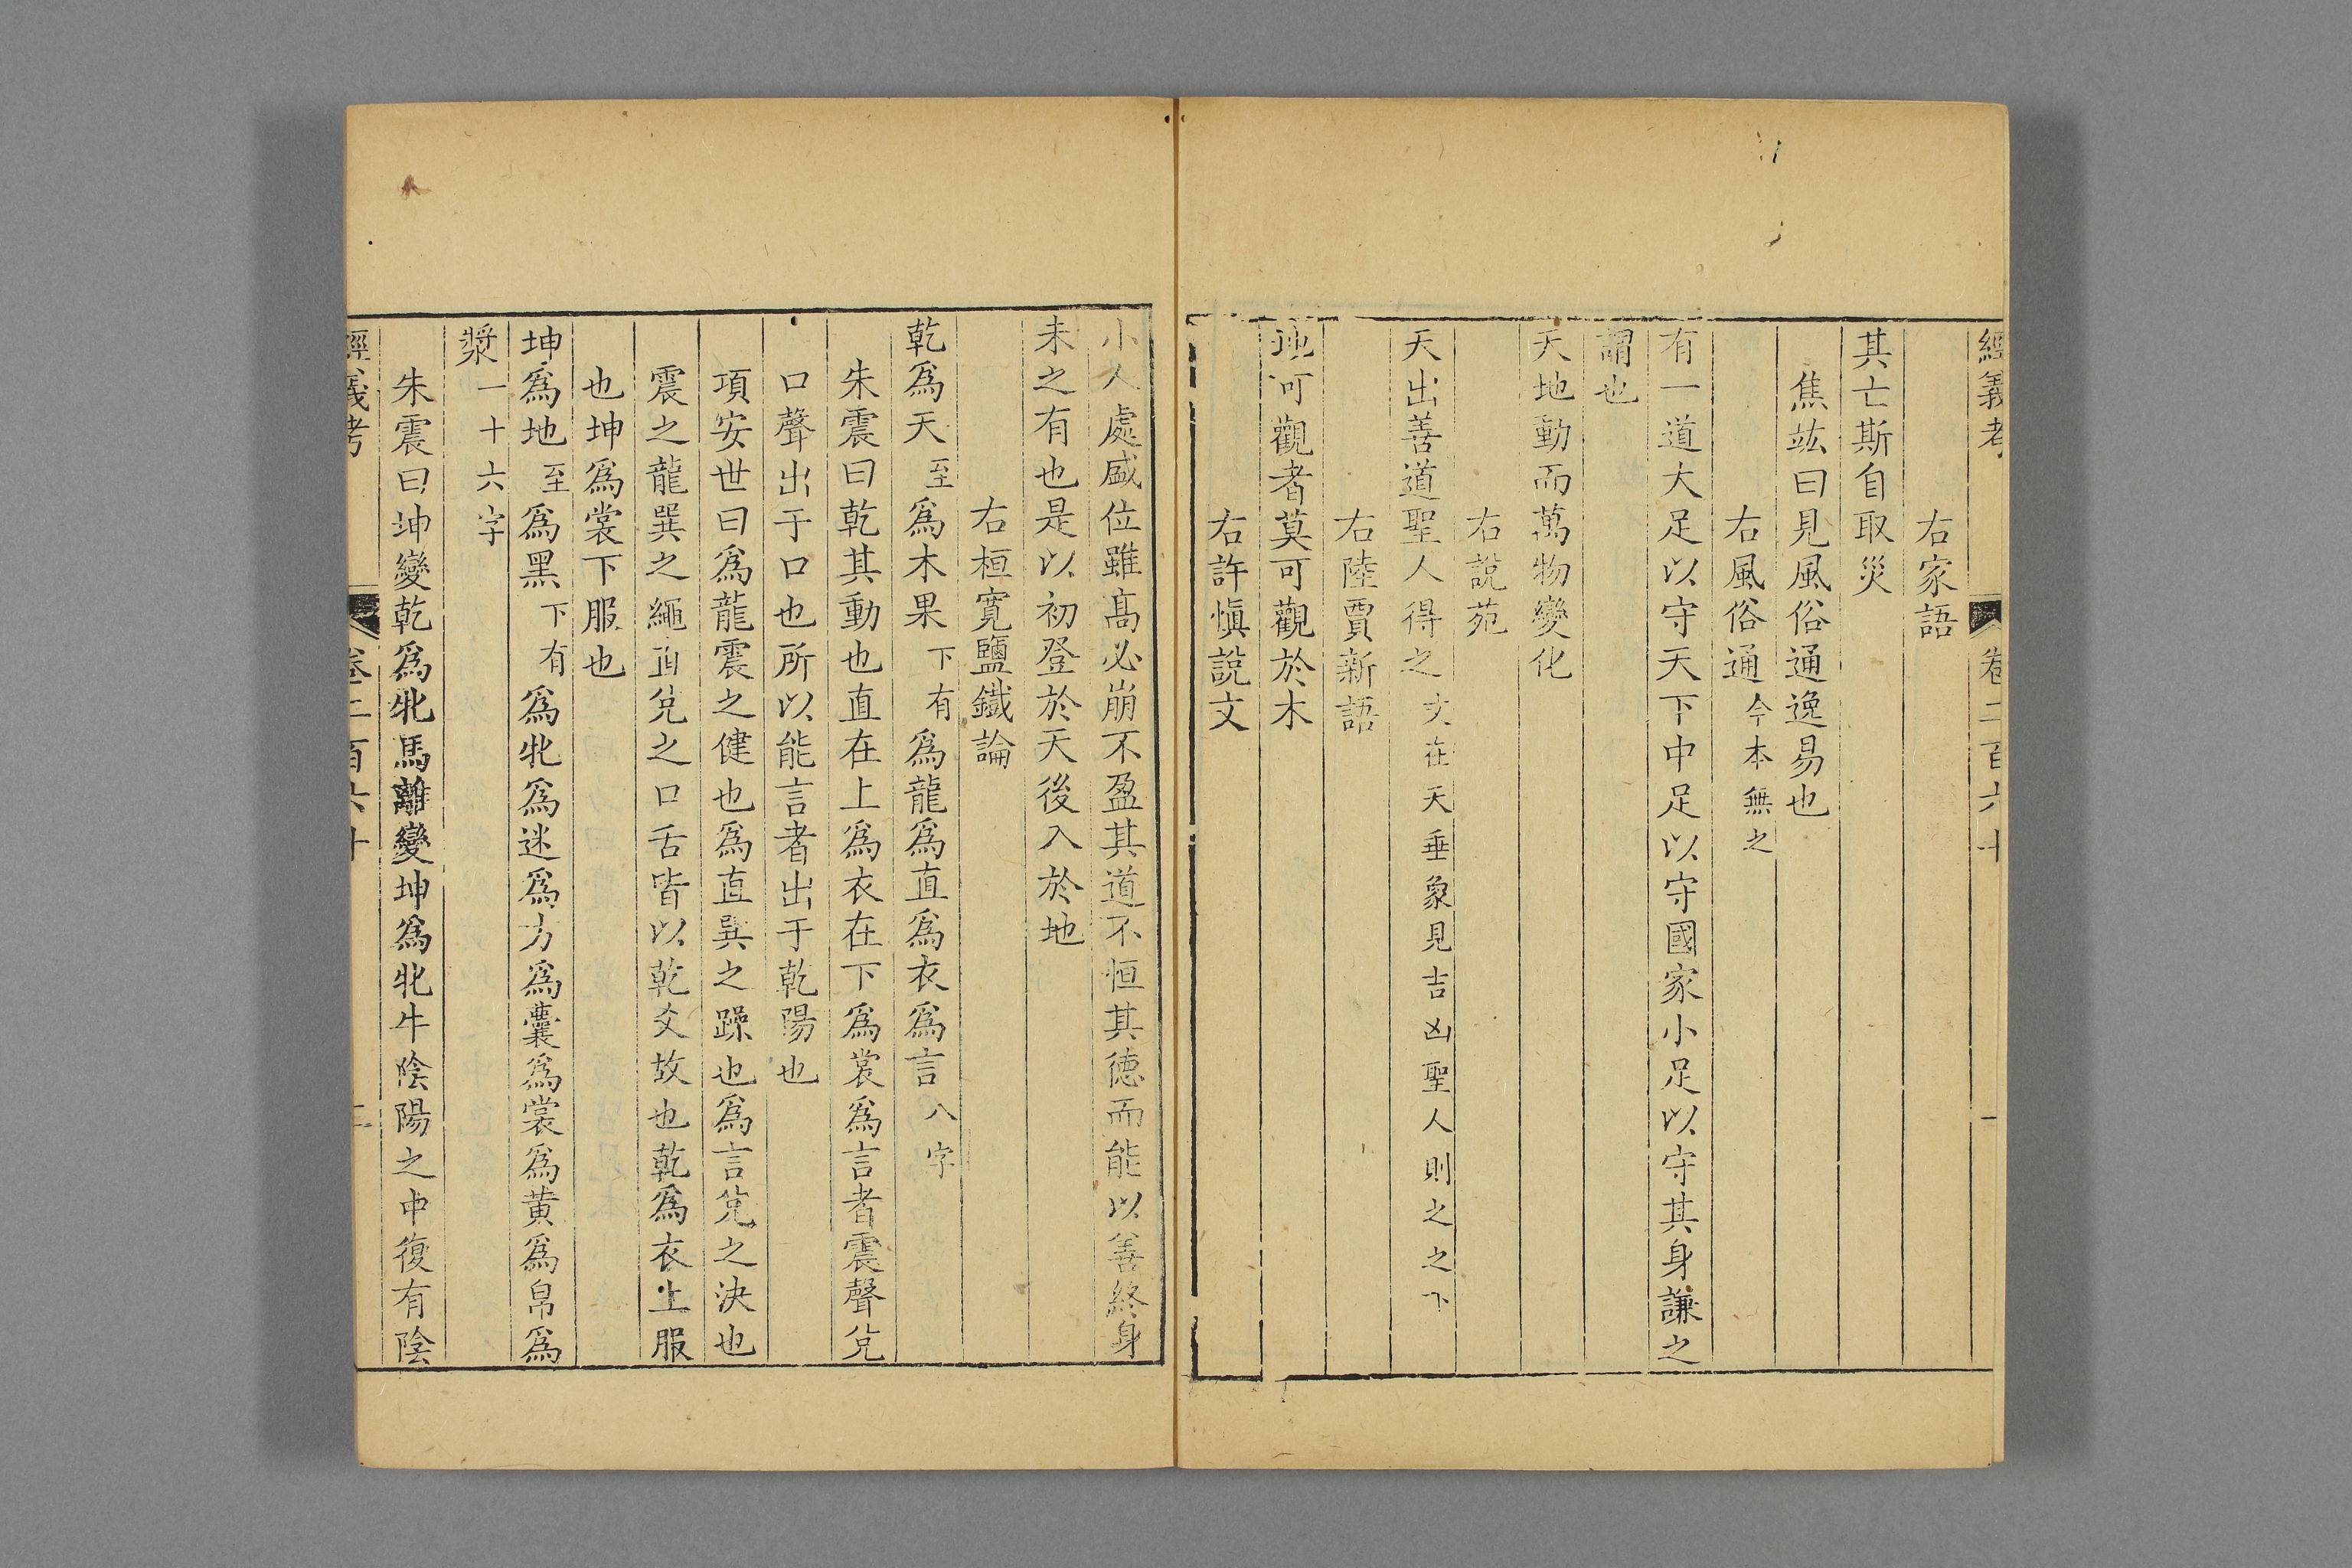 經義考 卷二百六十 一
右家語
其亡斯自取災
焦竑曰見風俗通逸易也
右風俗通今本無之
有一道大足以守天下中足以守國家小足以守其身謙之
謂也
天地動而萬物變化
右說苑
天出善道聖人得之文在天垂象見吉凶聖人則之之下
右陸賈新語
地可觀者莫可觀於木
右許慎說文
小人處盛位雖高必崩不盈其道不恒其德而能以善終身
未之有也是以初登於天後入於地
右桓寬鹽鐵論
乾爲天至爲木果下有爲龍爲直爲衣爲言八字
朱震曰乾其動也直在上爲衣在下爲裳爲言者震聲兌
口聲出于口也所以能言者出于乾陽也
項安世曰爲龍震之健也爲直巽之躁也爲言兌之決也
震之龍巽之繩直兌之口舌皆以乾爻故也乾爲衣上服
也坤爲裳下服也
坤爲地至爲黑下有爲牝爲迷爲方爲囊爲裳爲黄爲帛爲
漿一十六字
朱震曰坤變乾爲牝馬離變坤爲牝牛陰陽之中復有陰
經義考 卷二百六十 二